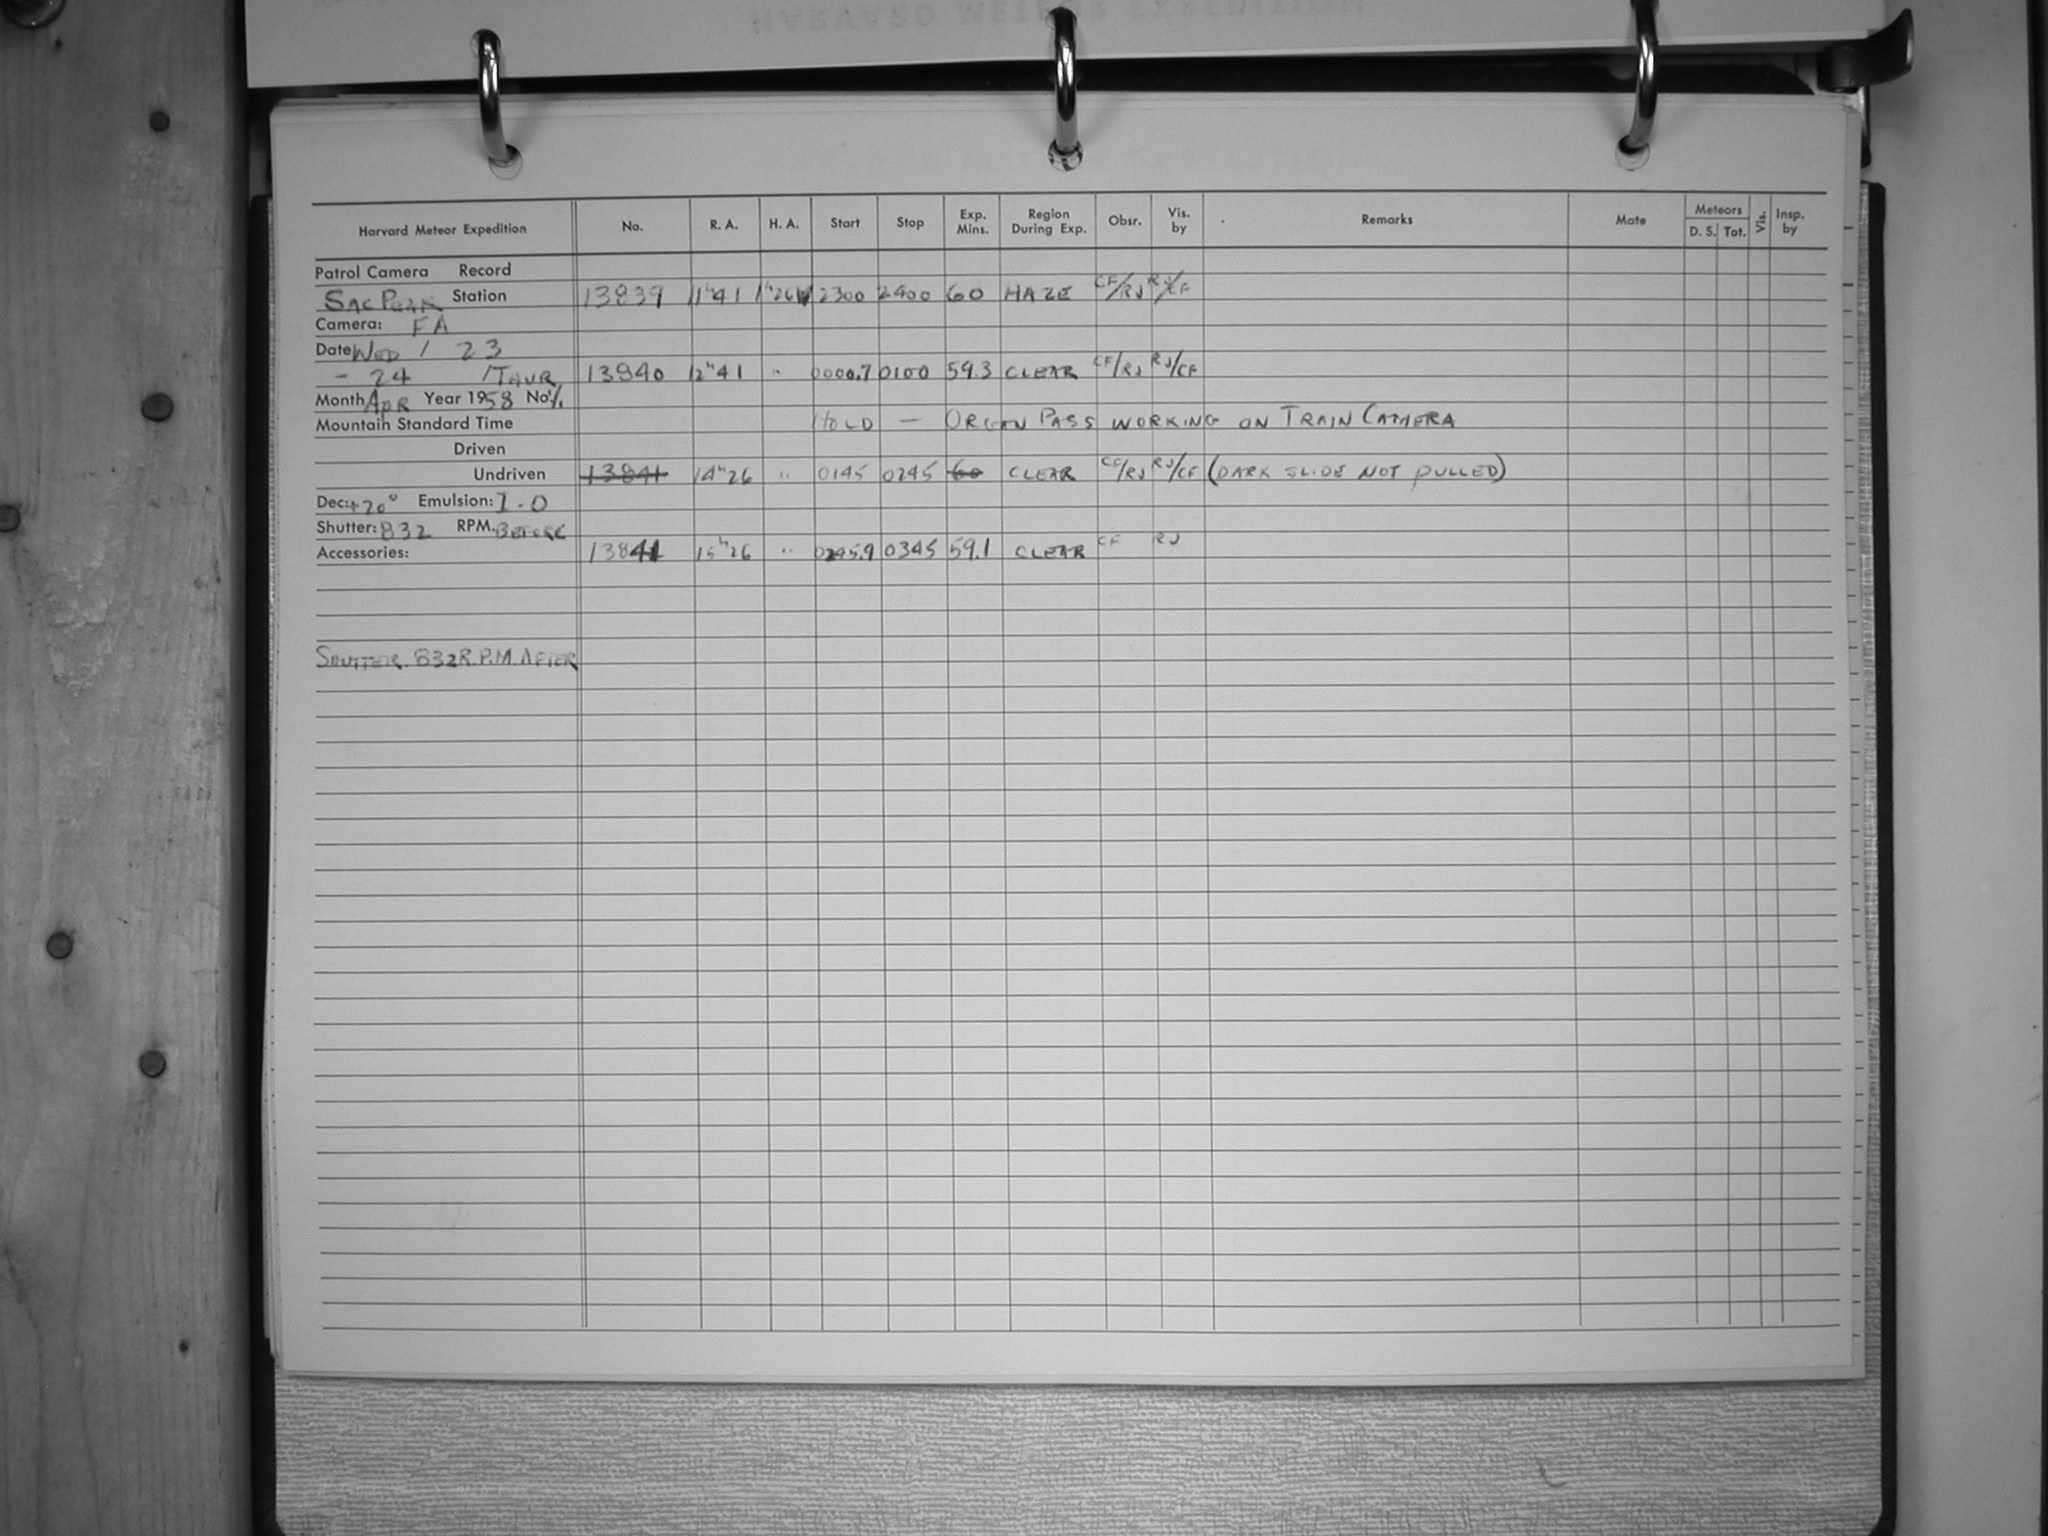 Harvard Meteor Expedition No. R. A. H. A. Start Stop Exp. Mins. Region During Exp. Obsr. Vis. by Remarks Mate Meteors D. S. Tot. Vis. Insp. by
Patrol Camera Record
Sac Peak Station 13839 11ʰ41 1ʰ26W 2300 2400 60 HAZE CF/RJ RJ/CF
Camera: FA
Date WED / 23
- 24 /THUR 13840 12ʰ41 " 0000.7 0100 59.3 CLEAR CF/RJ RJ/CF
Month APR Year 1958 No.
Mountain Standard Time HOLD — ORGAN PASS WORKING ON TRAIN CAMERA
Driven
Undriven 13841 14ʰ26 " 0145 0245 60 CLEAR CF/RJ RJ/CF (DARK SLIDE NOT PULLED)
Dec: +20° Emulsion: I-O
Shutter: 832 RPM. BEFORE
Accessories: 13841 15ʰ26 " 0245.9 0345 59.1 CLEAR CF RJ
SHUTTER 832 R.P.M. AFTER